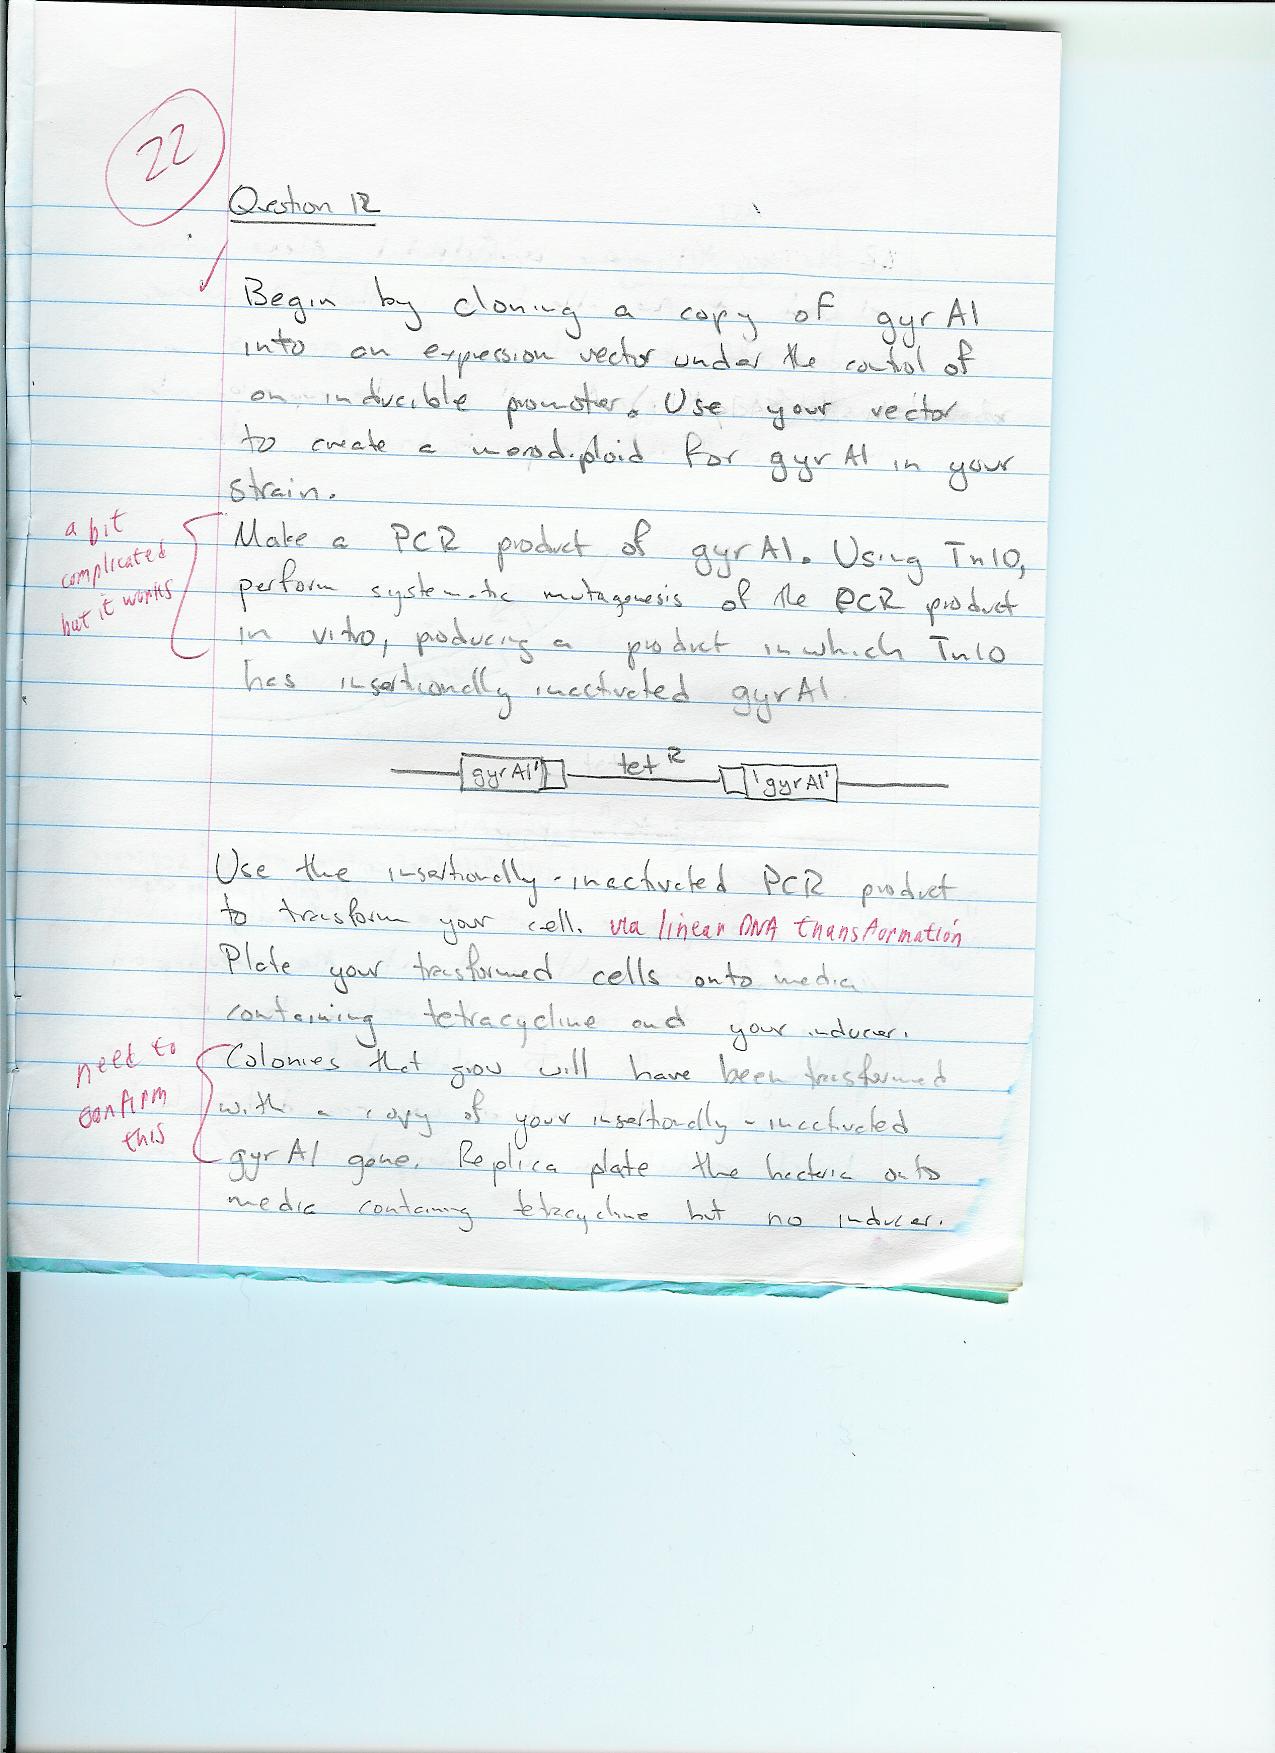 22
Question 12
Begin by cloning a copy of gyrA1
into an expression vector under the control of
an inducible promoter. Use your vector
to create a merodiploid for gyrA1 in your
strain.
a bit
complicated
but it works
Make a PCR product of gyrA1. Using Tn10,
perform systematic mutagenesis of the PCR product
in vitro, producing a product in which Tn10
has insertionally inactivated gyrA1.
gyrA1' tetR 'gyrA1'
Use the insertionally-inactivated PCR product
to transform your cell. via linear DNA transformation
Plate your transformed cells onto media
containing tetracycline and your inducer.
need to
confirm
this
Colonies that grow will have been transformed
with a copy of your insertionally-inactivated
gyrA1 gene. Replica plate the bacteria onto
media containing tetracycline but no inducer.